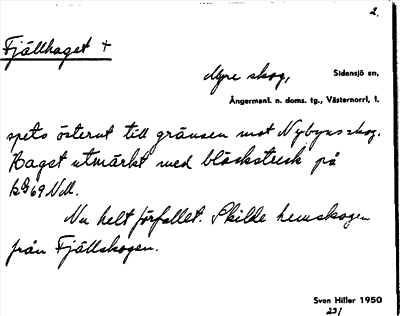 2.
Fjällhaget +
Myre skog, Sidensjö sn,
Ångermanl. n. doms. tg., Västernorrl. l.
spets österut till gränsen mot Nybyns skog.
Haget utmärkt med bläckstreck på
kg 69 NM.
Nu helt förfallet. Skilde hemskogen
från Fjällskogen.
Sven Hiller 1950